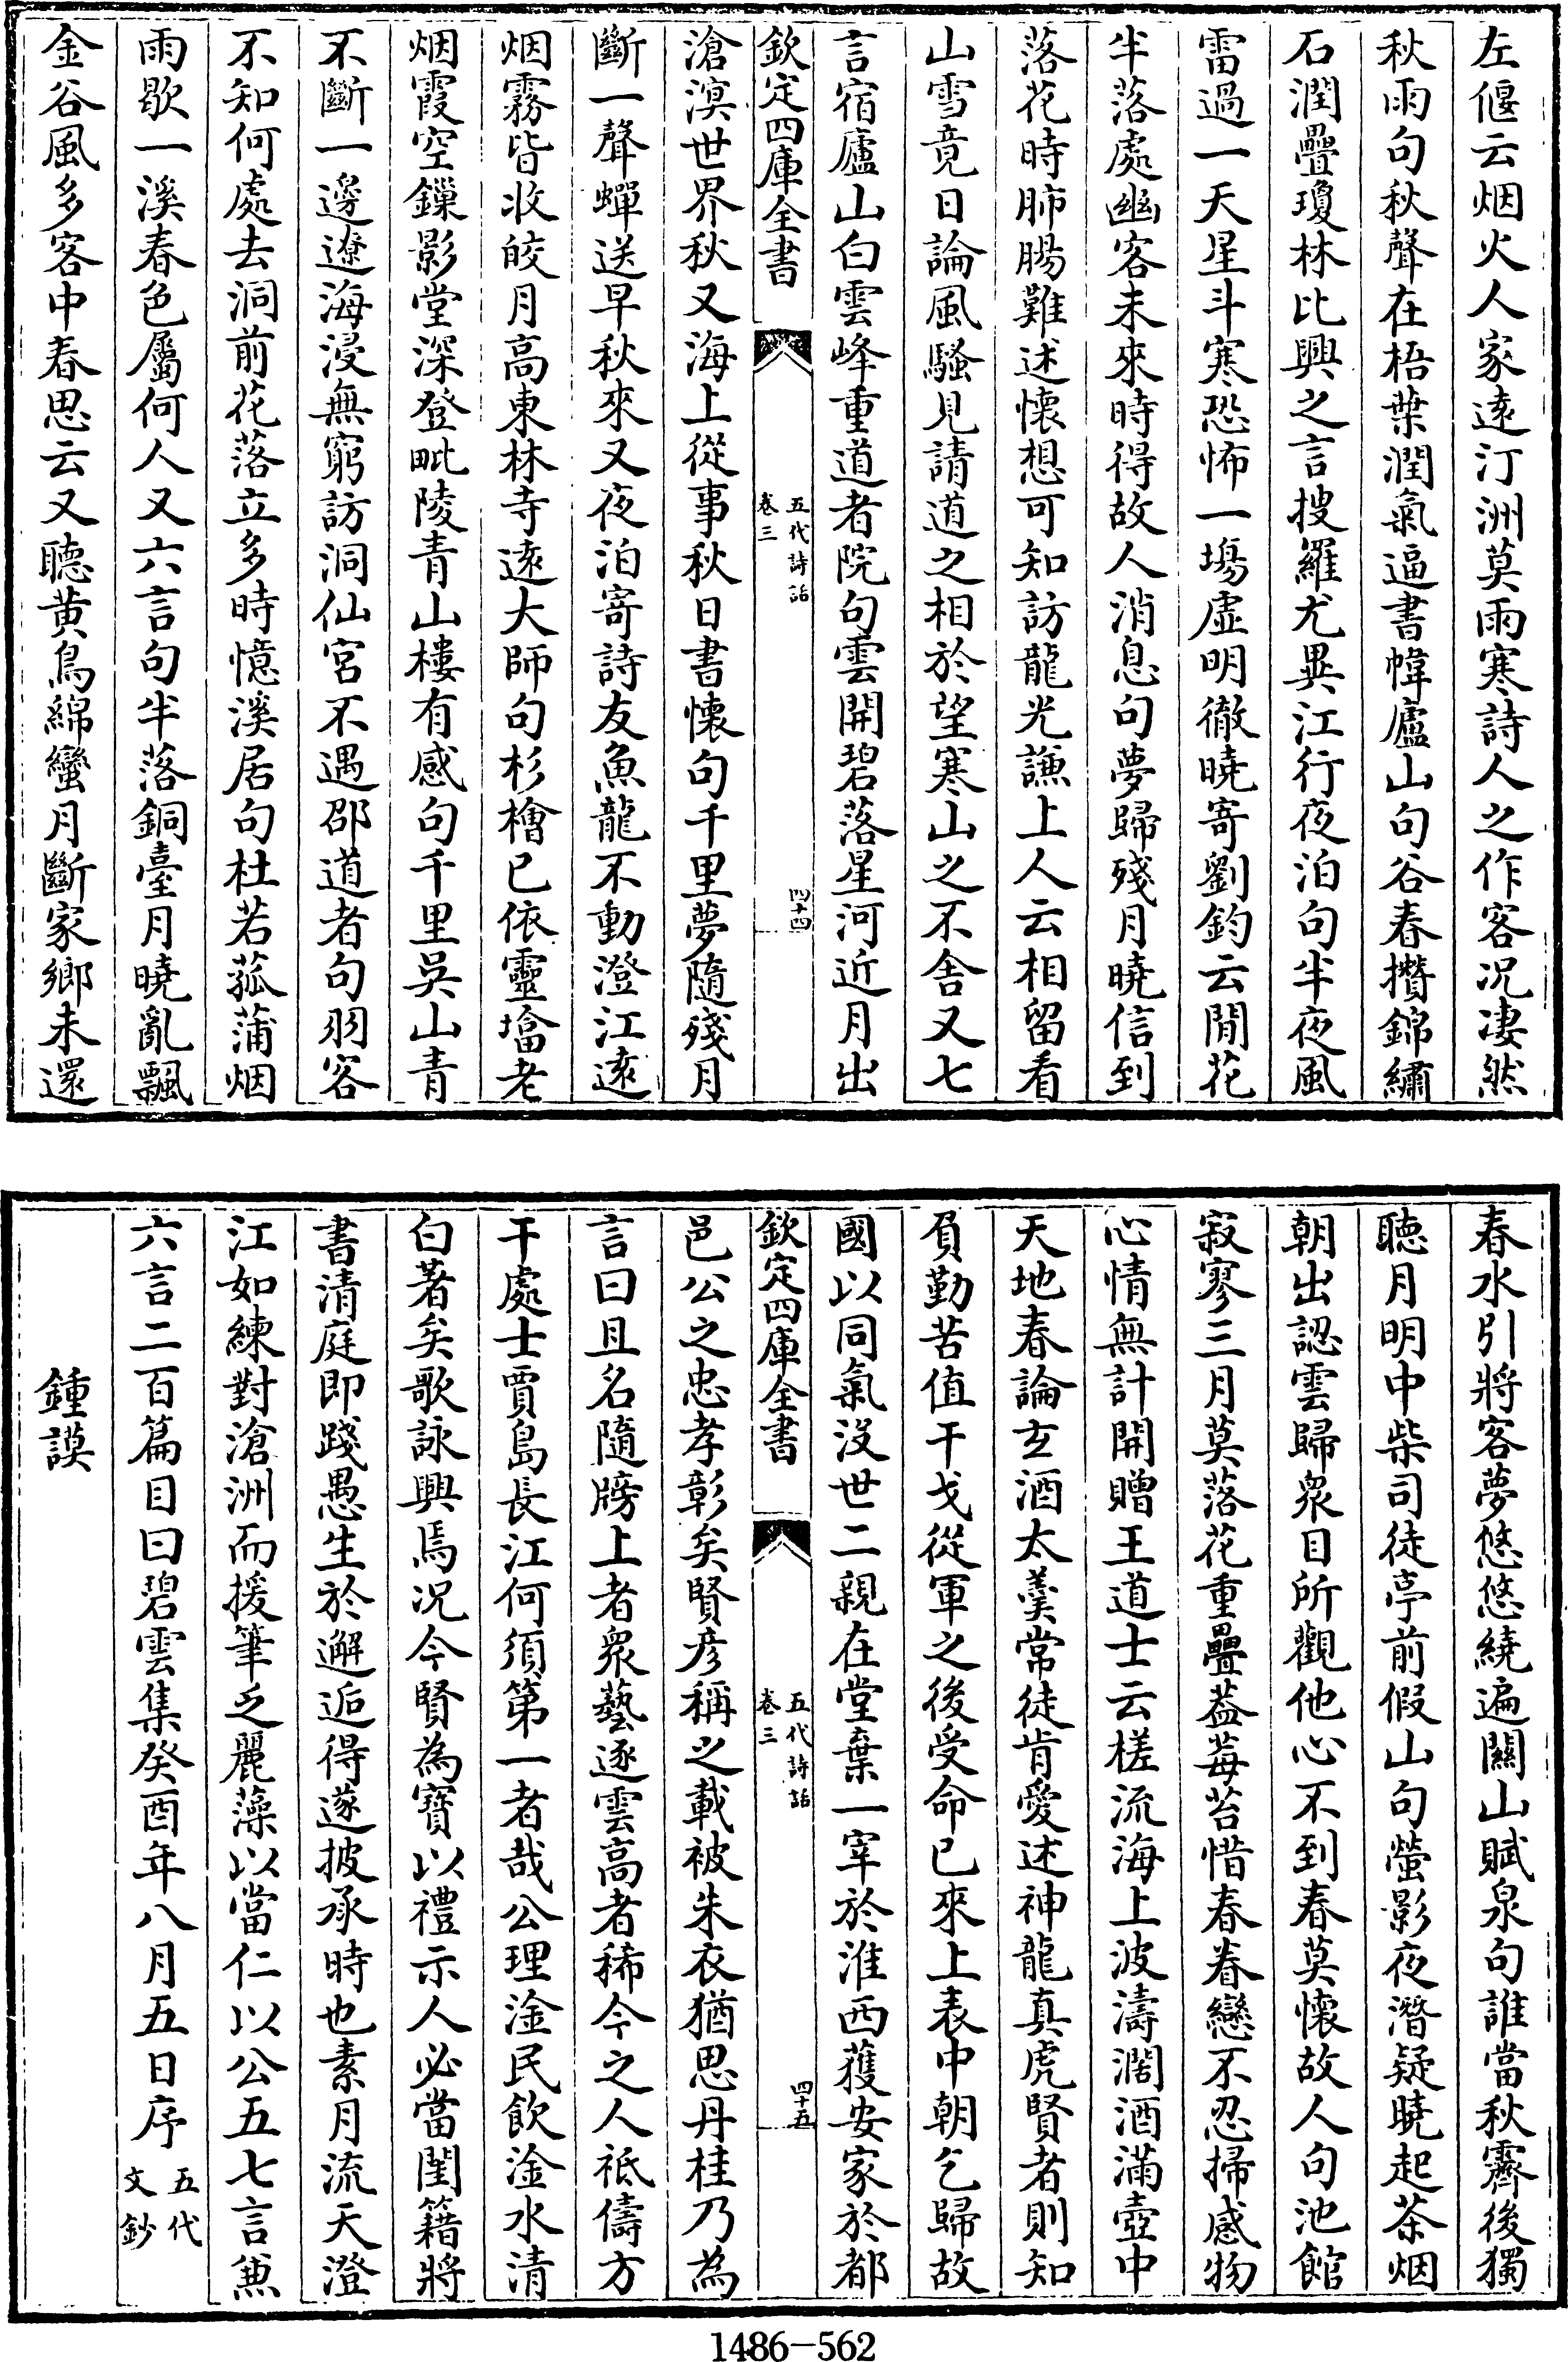 左偃云烟火人家遠汀洲莫雨寒詩人之作客况凄然
秋雨句秋聲在梧葉潤氣逼書幃廬山句谷春攢錦繡
石潤疊瓊林比興之言搜羅尤異江行夜泊句半夜風
雷過一天星斗寒恐怖一塲虛明徹曉寄劉鈞云閒花
半落處幽客未來時得故人消息句夢歸殘月曉信到
落花時肺腸難述懷想可知訪龍光謙上人云相留看
山雪竟日論風騷見請道之相於望寒山之不舍又七
言宿廬山白雲峰重道者院句雲開碧落星河近月出
欽定四庫全書
五代詩話
卷三
四十四
滄溟世界秋又海上從事秋日書懷句千里夢隨殘月
斷一聲蟬送早秋來又夜泊寄詩友魚龍不動澄江遠
烟霧皆收皎月高東林寺遠大師句杉檜已依靈塔老
烟霞空鏁影堂深登毗陵青山樓有感句千里吳山青
不斷一邊遼海浸無窮訪洞仙宮不遇邵道者句羽客
不知何處去洞前花落立多時憶溪居句杜若菰蒲烟
雨歇一溪春色屬何人又六言句半落銅臺月曉亂飄
金谷風多客中春思云又聽黃鳥綿蠻月斷家鄉未還
春水引將客夢悠悠繞遍關山賦泉句誰當秋霽後獨
聽月明中柴司徒亭前假山句螢影夜潛疑曉起茶烟
朝出認雲歸衆目所觀他心不到春莫懷故人句池館
寂寥三月莫落花重疊葢莓苔惜春眷戀不忍掃感物
心情無計開贈王道士云槎流海上波濤濶酒滿壺中
天地春論玄酒太羹常徒肯愛述神龍真虎賢者則知
負勤苦值干戈從軍之後受命已來上表中朝乞歸故
國以同氣沒世二親在堂棄一宰於淮西獲安家於都
欽定四庫全書
五代詩話
卷三
四十五
邑公之忠孝彰矣賢彦稱之載被朱衣猶思丹桂乃為
言曰且名隨牓上者衆藝逐雲高者稀今之人祗儔方
干處士賈島長江何須第一者哉公理淦民飲淦水清
白著矣歌詠興焉况今賢為寶以禮示人必當閨籍將
書清庭即踐愚生於邂逅得遂披承時也素月流天澄
江如練對滄洲而援筆乏麗藻以當仁以公五七言兼
六言二百篇目曰碧雲集癸酉年八月五日序五代文鈔
鍾謨
1486-562